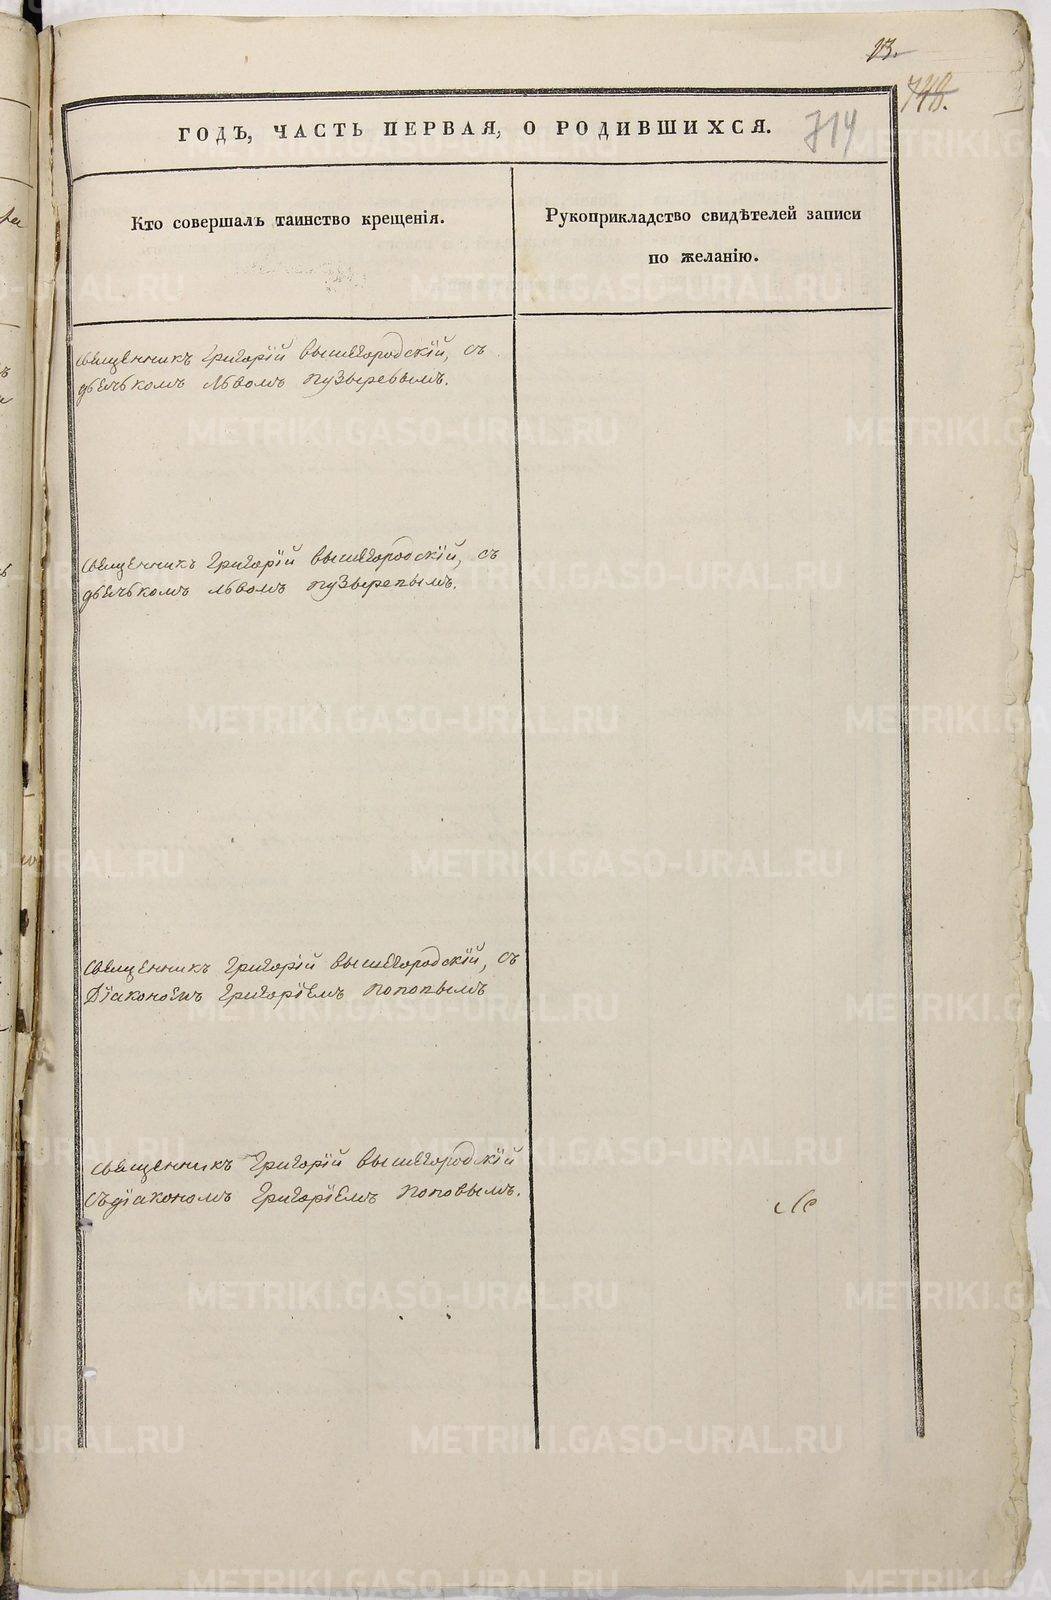 13.
718.
714
ГОДЪ, ЧАСТЬ ПЕРВАЯ, О РОДИВШИХСЯ.
Кто совершалъ таинство крещенія.
Рукоприкладство свидѣтелей записи
по желанію.
священникъ григорїй вышегородскїй, съ
дьячкомъ львомъ пузыревымъ.
священникъ григорїй вышегородскїй, съ
дьячкомъ львомъ пузыревымъ.
священникъ григорїй вышегородскїй, съ
Дїакономъ григорїемъ поповымъ
священникъ григорїй вышегородскїй
съ дїакономъ григорїемъ поповымъ.
METRIKI.GASO-URAL.RU